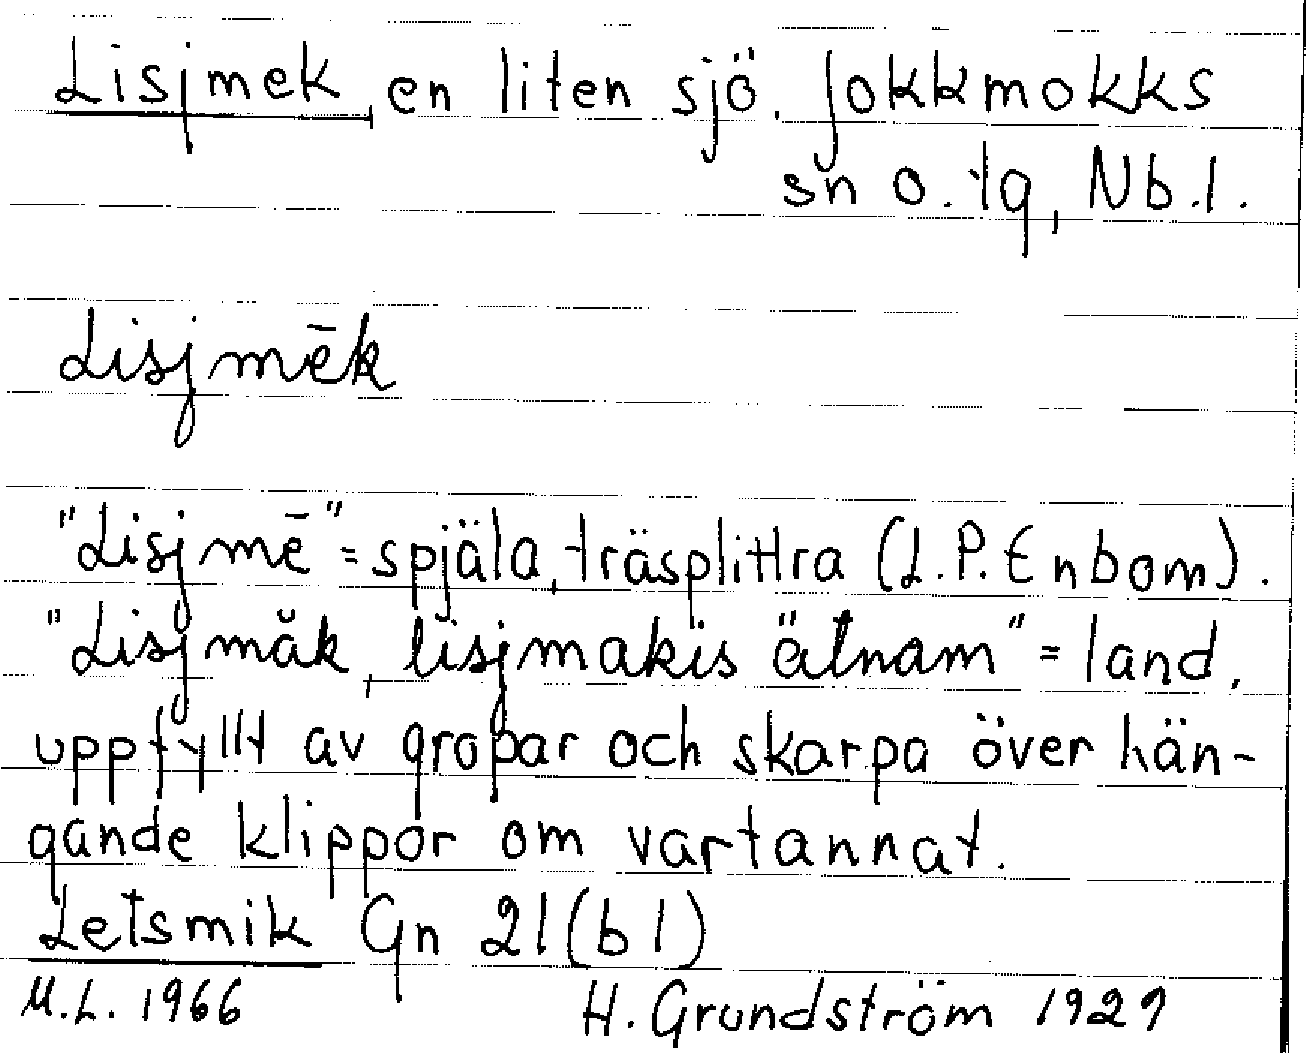 Lisjmek, en liten sjö. Jokkmokks
sn o. tg, Nb.l.
Lisjmēk
"Lisjmē" = spjäla, träsplittra (L.P. Enbom).
"Lisjmăk, lisjmakis ätnam" = land,
uppfyllt av gropar och skarpa över hän-
gande klippor om vartannat.
Letsmik Gn 21(b1)
M.L. 1966 H. Grundström 1929